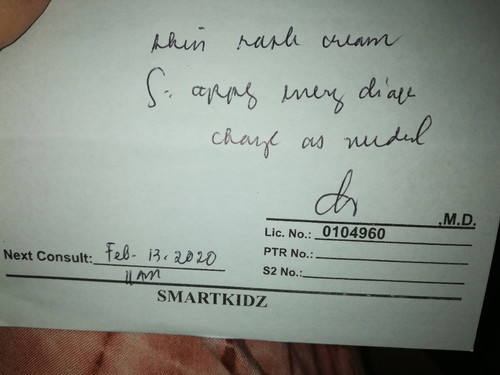 skin rash cream
S: apply every diape
change as needed
,M.D.
Lic. No.: 0104960
PTR No.:
Next Consult: Feb. 13. 2020
11AM
S2 No.:
SMARTKIDZ